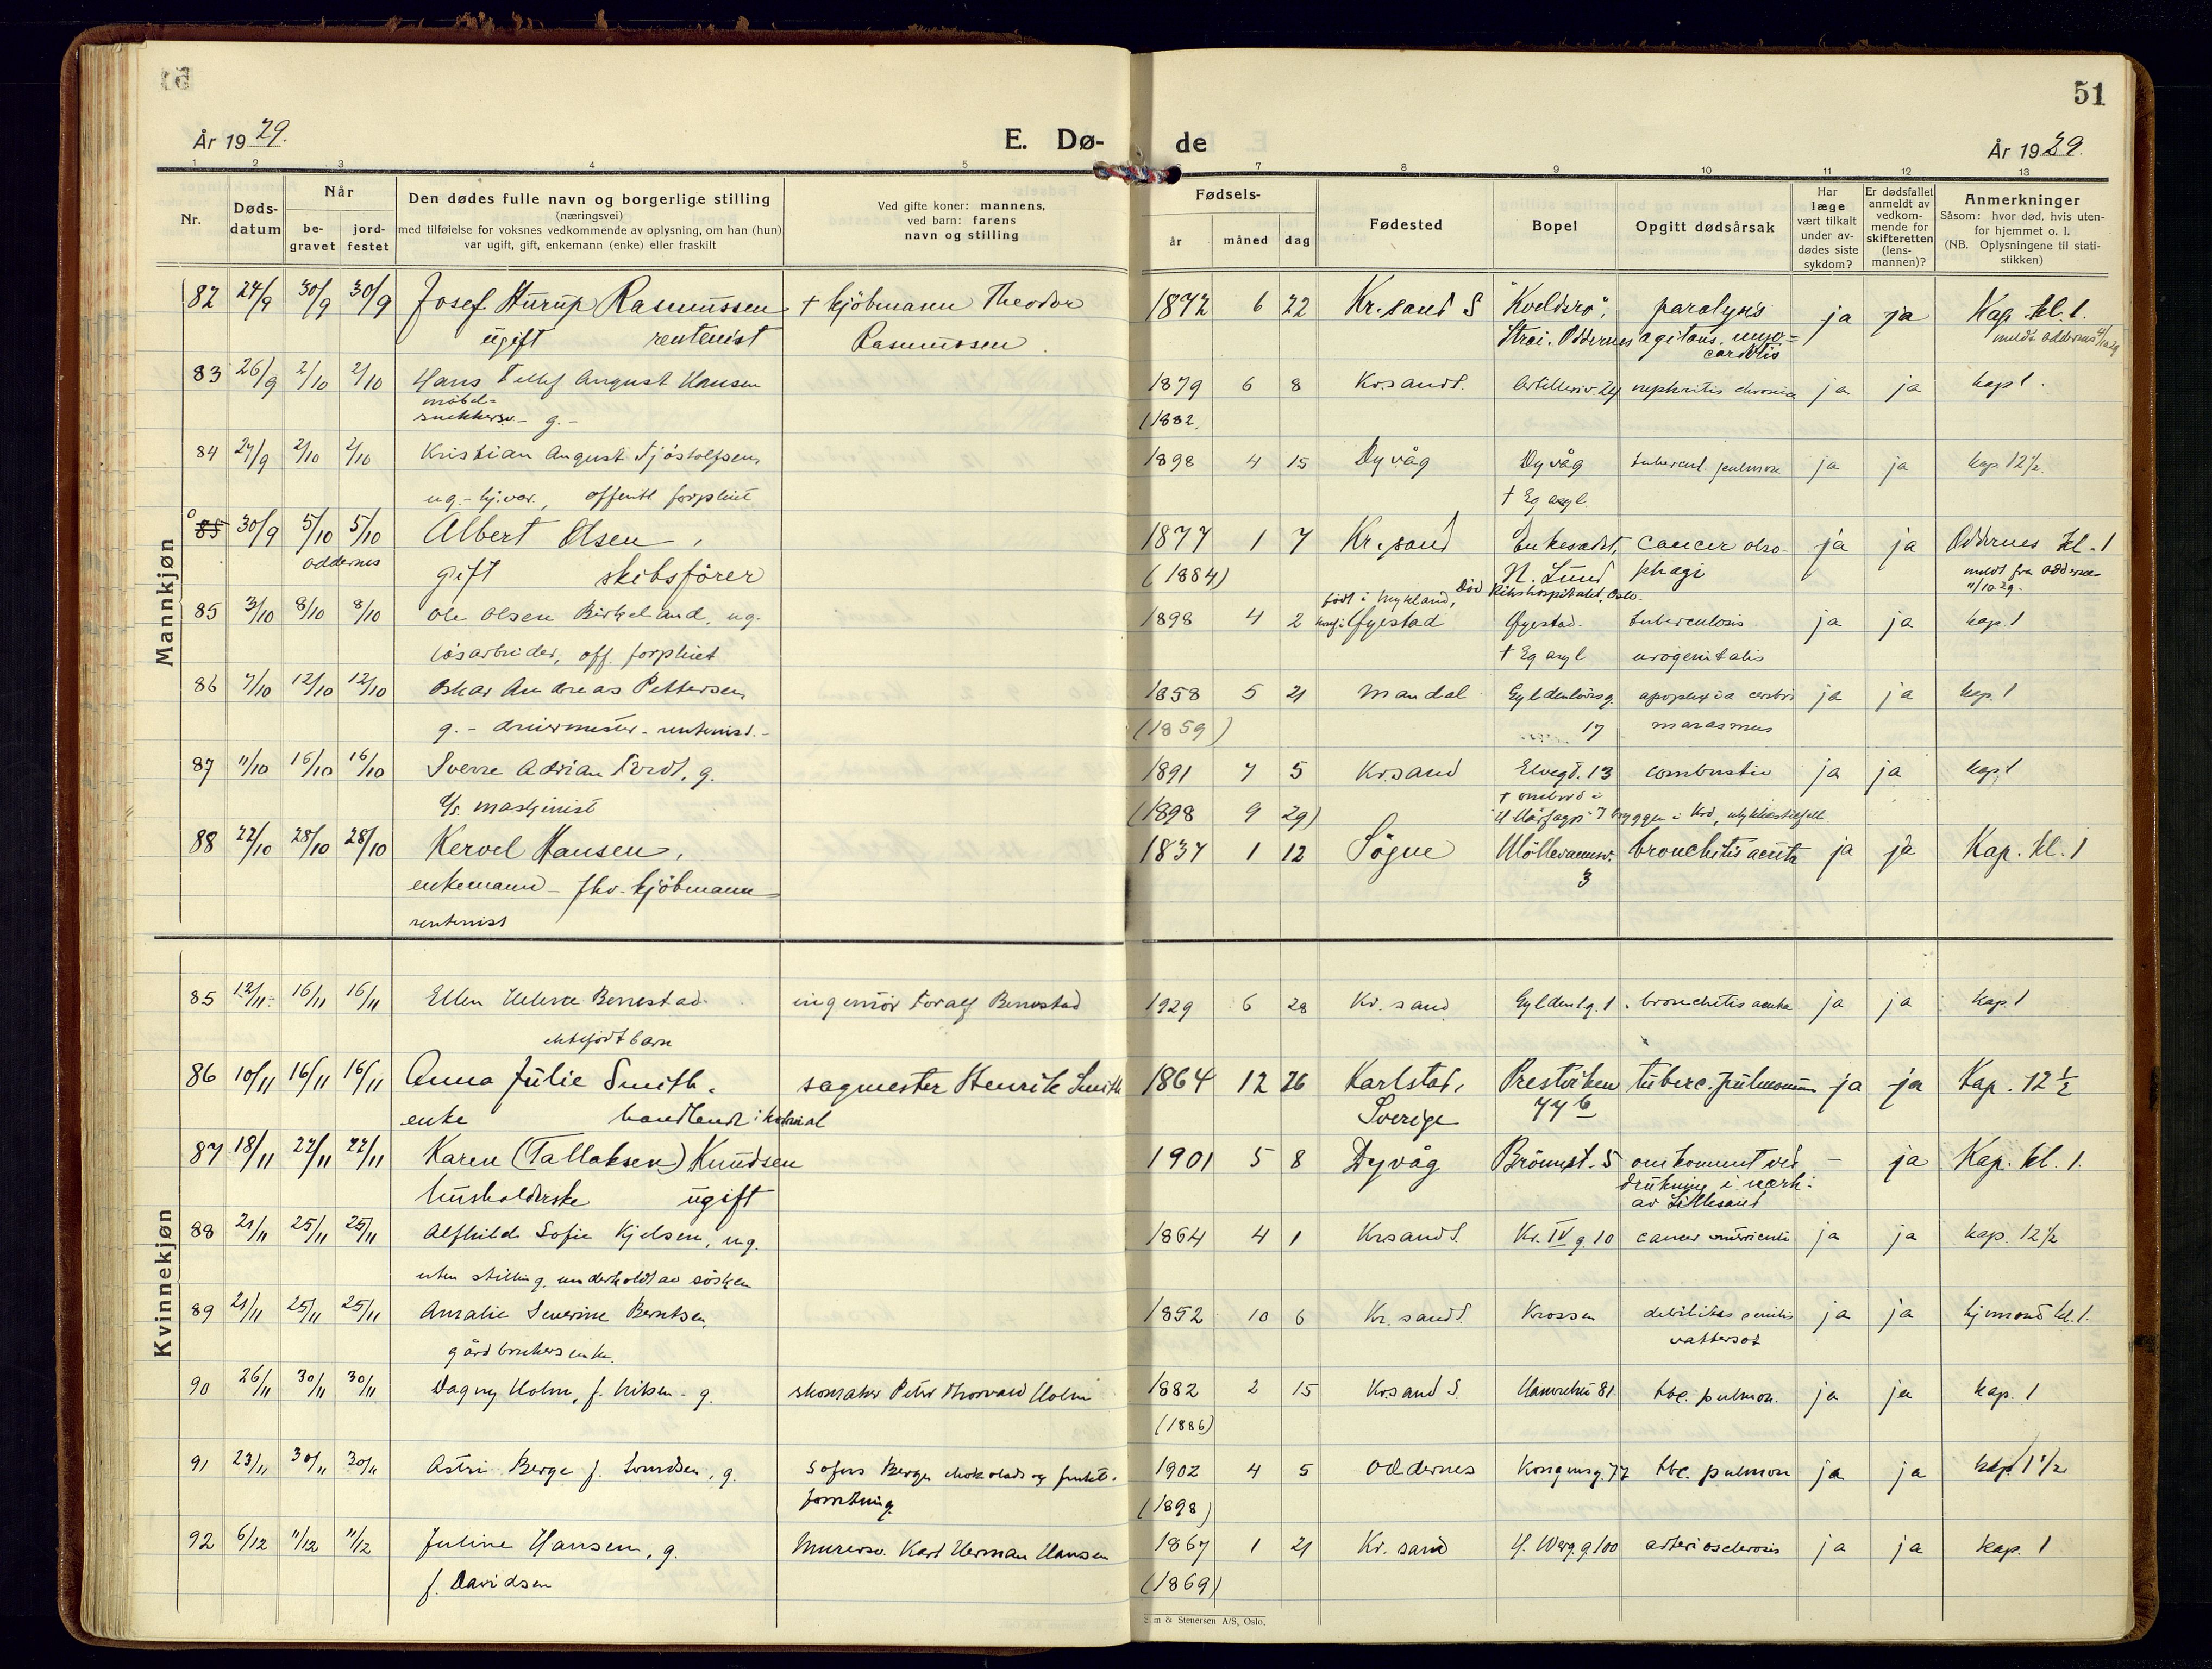 51
År 1929.
E. Dø-
de
År 1929.
1 2 3 4 5 7 8 9 10 11 12 13
Nr.
Døds-
datum
Når
be-
gravet
jord-
festet
Den dødes fulle navn og borgerlige stilling
(næringsvei)
med tilføielse for voksnes vedkommende av oplysning, om han (hun)
var ugift, gift, enkemann (enke) eller fraskilt
Ved gifte koner: mannens,
ved barn: farens
navn og stilling
Fødsels-
år
måned
dag
Fødested
Bopel
Opgitt dødsårsak
Har
læge
vært tilkalt
under av-
dødes siste
sykdom?
Er dødsfallet
anmeldt av
vedkom-
mende for
skifteretten
(lens-
mannen)?
Anmerkninger
Såsom: hvor død, hvis uten-
for hjemmet o. l.
(NB. Oplysningene til stati-
stikken)
Mannkjøn
82 24/9 30/9 30/9 Josef Hurup Rasmussen + kjöbmann Theodor 1872 6 22 Kr.sand S "Kveldsro", paralysis ja ja Kap. kl. 1.
ugift rentenist Rasmussen Strai. Oddernes agitans, myo-
carditis
meldt Oddernes
83 26/9 2/10 2/10 Hans Tellef August Hansen 1879 6 8 Krsand S. Artilleriv. 24 nephritis chronica ja ja kap 1.
møbel-
snekkersv - g. - (1882.
84 27/9 2/10 2/10 Kristian August Tjöstolfsen, 1898 4 15 Dyvåg Dyvåg tubercul. pulmon ja ja kap. 12½.
ug. - hj.var., offentl forpleiet + Eg asyl.
0 85 30/9 5/10 5/10 Albert Olsen, 1877 1 7 Kr.sand Enkesædet, cancer oeso- ja ja Oddernes kl. 1
oddernes gift skibsförer (1884) N. Lund phagi meldt fra Oddernes
11/10.29.
Død Rikshospitalet, Oslo.
født i Mykland,
85 3/10 8/10 8/10 Ole Olsen Birkeland, ug. 1898 4 2 Øyestad Øyestad. tuberculosis ja ja kap. 1
løsarbeider, off. forpleiet + Eg asyl urogenitalis
86 7/10 12/10 12/10 Oskar Andreas Pettersen, 1858 5 21 Mandal Gyldenløvesg. apoplexia cerebri ja ja kap. 1
g. - dreiermester - rentenist. - (1859) 17 marasmus
87 11/10 16/10 16/10 Sverre Adrian Tordt, g. 1891 7 5 Kr.sand Elvegt. 13 combustio ja ja kap. 1
maskinist (1898 9 29) + ombord i
bryggen i Krs, ulykkestilfelle
88 22/10 28/10 28/10 Kervel Hansen, 1837 1 12 Sögne Möllevannsv. bronchitis acuta ja ja Kap. kl. 1
enkemann - fhv. kjöbmann 3
rentenist
Kvinnekjøn
85 12/11 16/11 16/11 Ellen Helene Bennestad ingeniør Toralf Bennestad 1929 6 28 Kr.sand Gyldenl.g. 1. bronchitis acuta ja ja kap 1
ektefödt barn
86 10/11 16/11 16/11 Anna Julie Smith. sagmester Henrik Smith 1864 12 26 Karlstad, Prestviken tuberc. pulmonum ja ja Kap. 12½
enke handlende i kolonial Sverige 77 b
87 18/11 22/11 22/11 Karen (Tallaksen) Knudsen 1901 5 8 Dyvåg Brönnst. 5 omkommet ved - ja Kap. kl. 1.
husholderske ugift drukning i nærh.
av Lillesand
88 21/11 25/11 25/11 Alfhild Sofie Kjelsen, ug. 1864 4 1 Krsand S. Kr. IV g. 10 cancer ventriculi ja ja kap. 12½
uten stilling, underholdt av søsken
89 21/11 25/11 25/11 Amalie Severine Berntsen, 1852 10 6 Kr.sand S. Krossen debilitas senilis ja ja hjemond kl. 1.
gårdbrukers enke. vattersot
90 26/11 30/11 30/11 Dagny Holm, f. Nilsen - g. skomaker Peter Thorvald Holm 1882 2 15 Krsand S. 81 tbc. pulmon. ja ja kap. 1
(1886)
91 23/11 30/11 30/11 Astri Berge f. g. Sofus Berge, chokolade og frukt- 1902 4 5 Oddernes Kongensg. 77 tbc. pulmon ja ja kap. 1½
forretning. (1898)
92 6/12 11/12 11/12 Juline Hansen, g. Murersv. Karl Herman Hansen 1867 1 21 Kr.sand H. Werg. g. 100 arteriosclerosis ja ja kap. 1
f. Davidsen (1869)
& Stenersen A/S, Oslo.